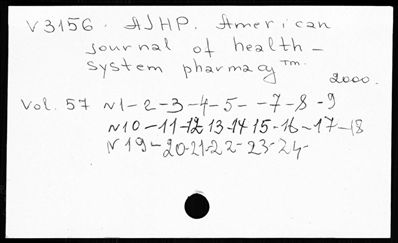 V3156. AJHP. American
journal of health-
system pharmacy™.
2000.
Vol. 57 N1-2-3-4-5- -7-8-9
N10-11-12 13-14 15-16-17-18
N19-20-21-22-23-24-